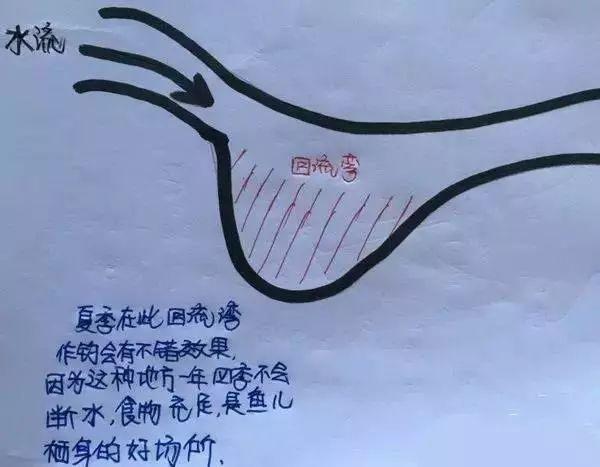 水流
回流弯
夏季在此回流湾
作钓会有不错效果,
因为这种地方一年四季不会
断水,食物充足,是鱼儿
栖身的好场所.